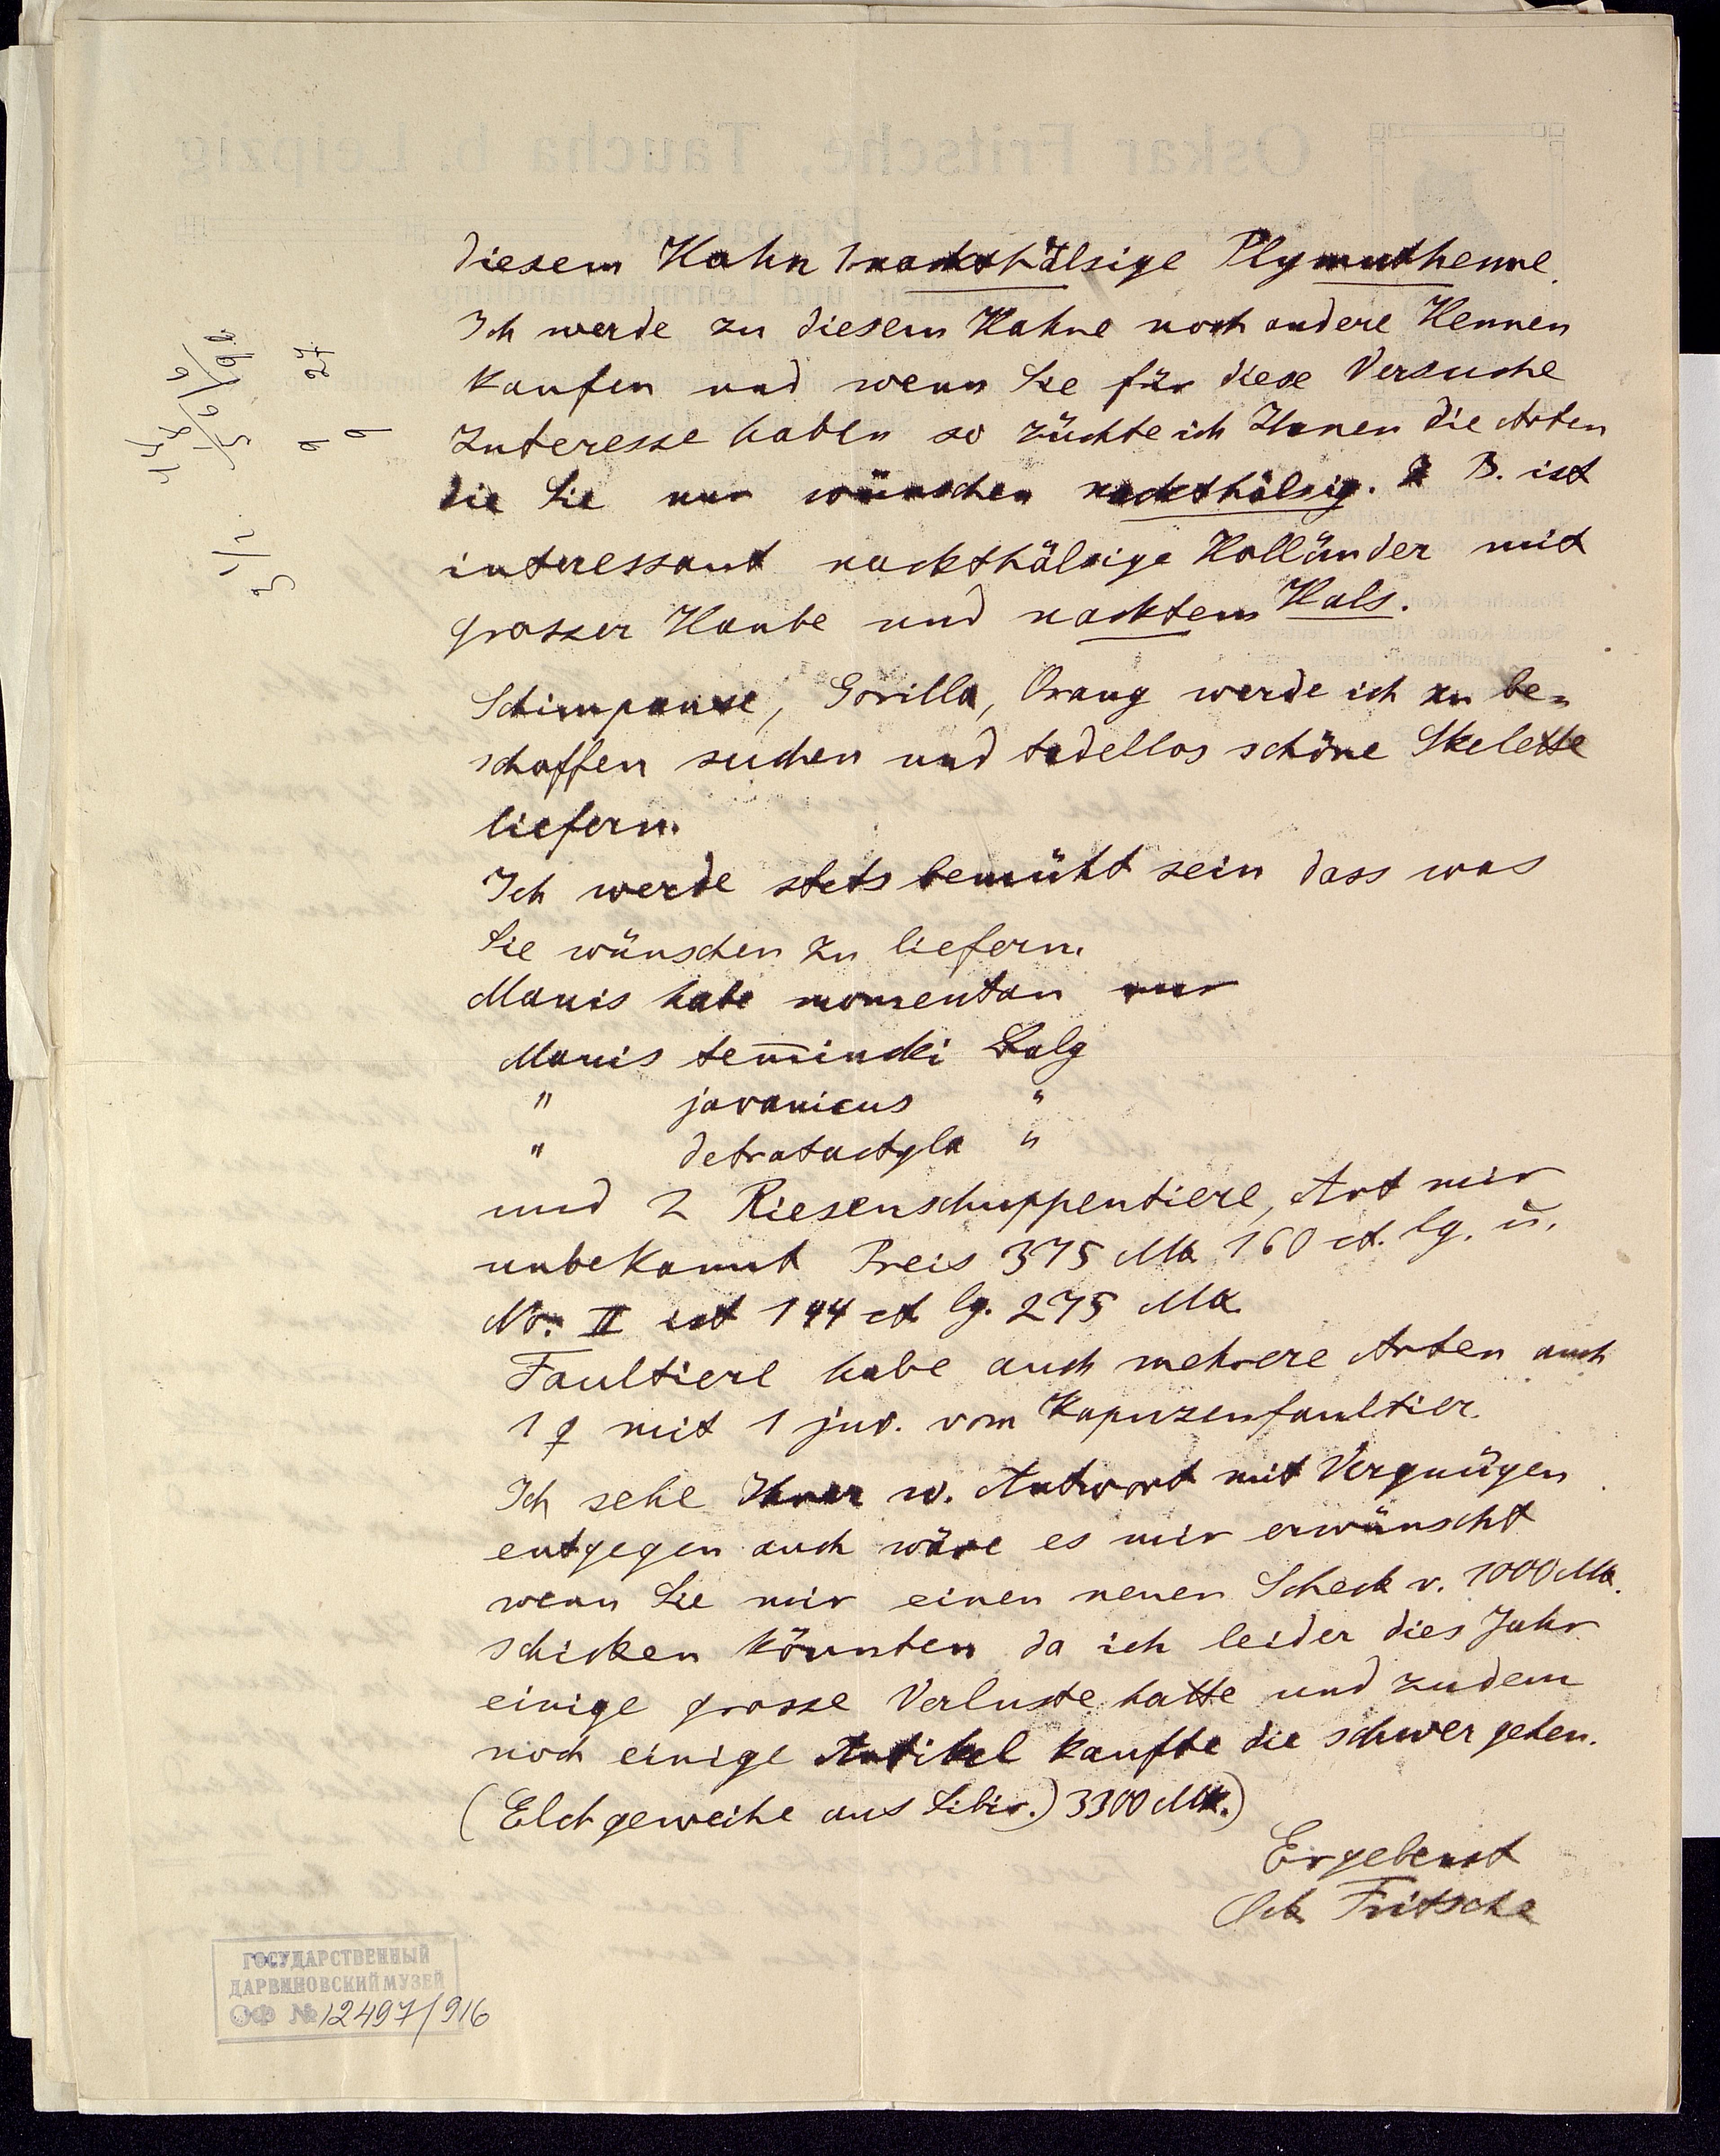 diesem Hahn 1 nackthälsige Plymuthenne.
Ich werde zu diesem Hahne noch andere Hennen
kaufen und wenn Sie für diese Versuche
Interesse haben so züchte ich Ihnen die Arten
die Sie nur wünschen nackthälsig. Z B. ist
interessant nackthälsige Holländer mit
grosser Haube und nacktem Hals.
Schimpanse, Gorilla, Orang werde ich zu be-
schaffen suchen und tadellos schöne Skelette
liefern.
Ich werde stets bemüht sein dass was
Sie wünschen zu liefern.
Manis habe momentan nur
Manis temincki Balg
" javanicus "
" detratactyla "
und 2 Riesenschuppentiere, Art mir
unbekannt Preis 375 Mk 160 ct. lg. u.
No. II ist 144 ct lg. 275 Mk
Faultiere habe auch mehrere Arten auch
1 ♀ mit 1 juv. vom Kapuzenfaultier.
Ich sehe Ihrer w. Antwort mit Vergnügen
entgegen auch wäre es mir erwünscht
wenn Sie mir einen neuen Scheck v. 1000 Mk.
schicken könnten da ich leider dies Jahr
einige grosse Verluste hatte und zudem
noch einige Artikel kaufte die schwer gehen.
(Elchgeweihe aus Sibir.) 3300 Mk.)
Ergebenst
Osk Fritsche
ГОСУДАРСТВЕННЫЙ
ДАРВИНОВСКИЙ МУЗЕЙ
ОФ № 12497/916